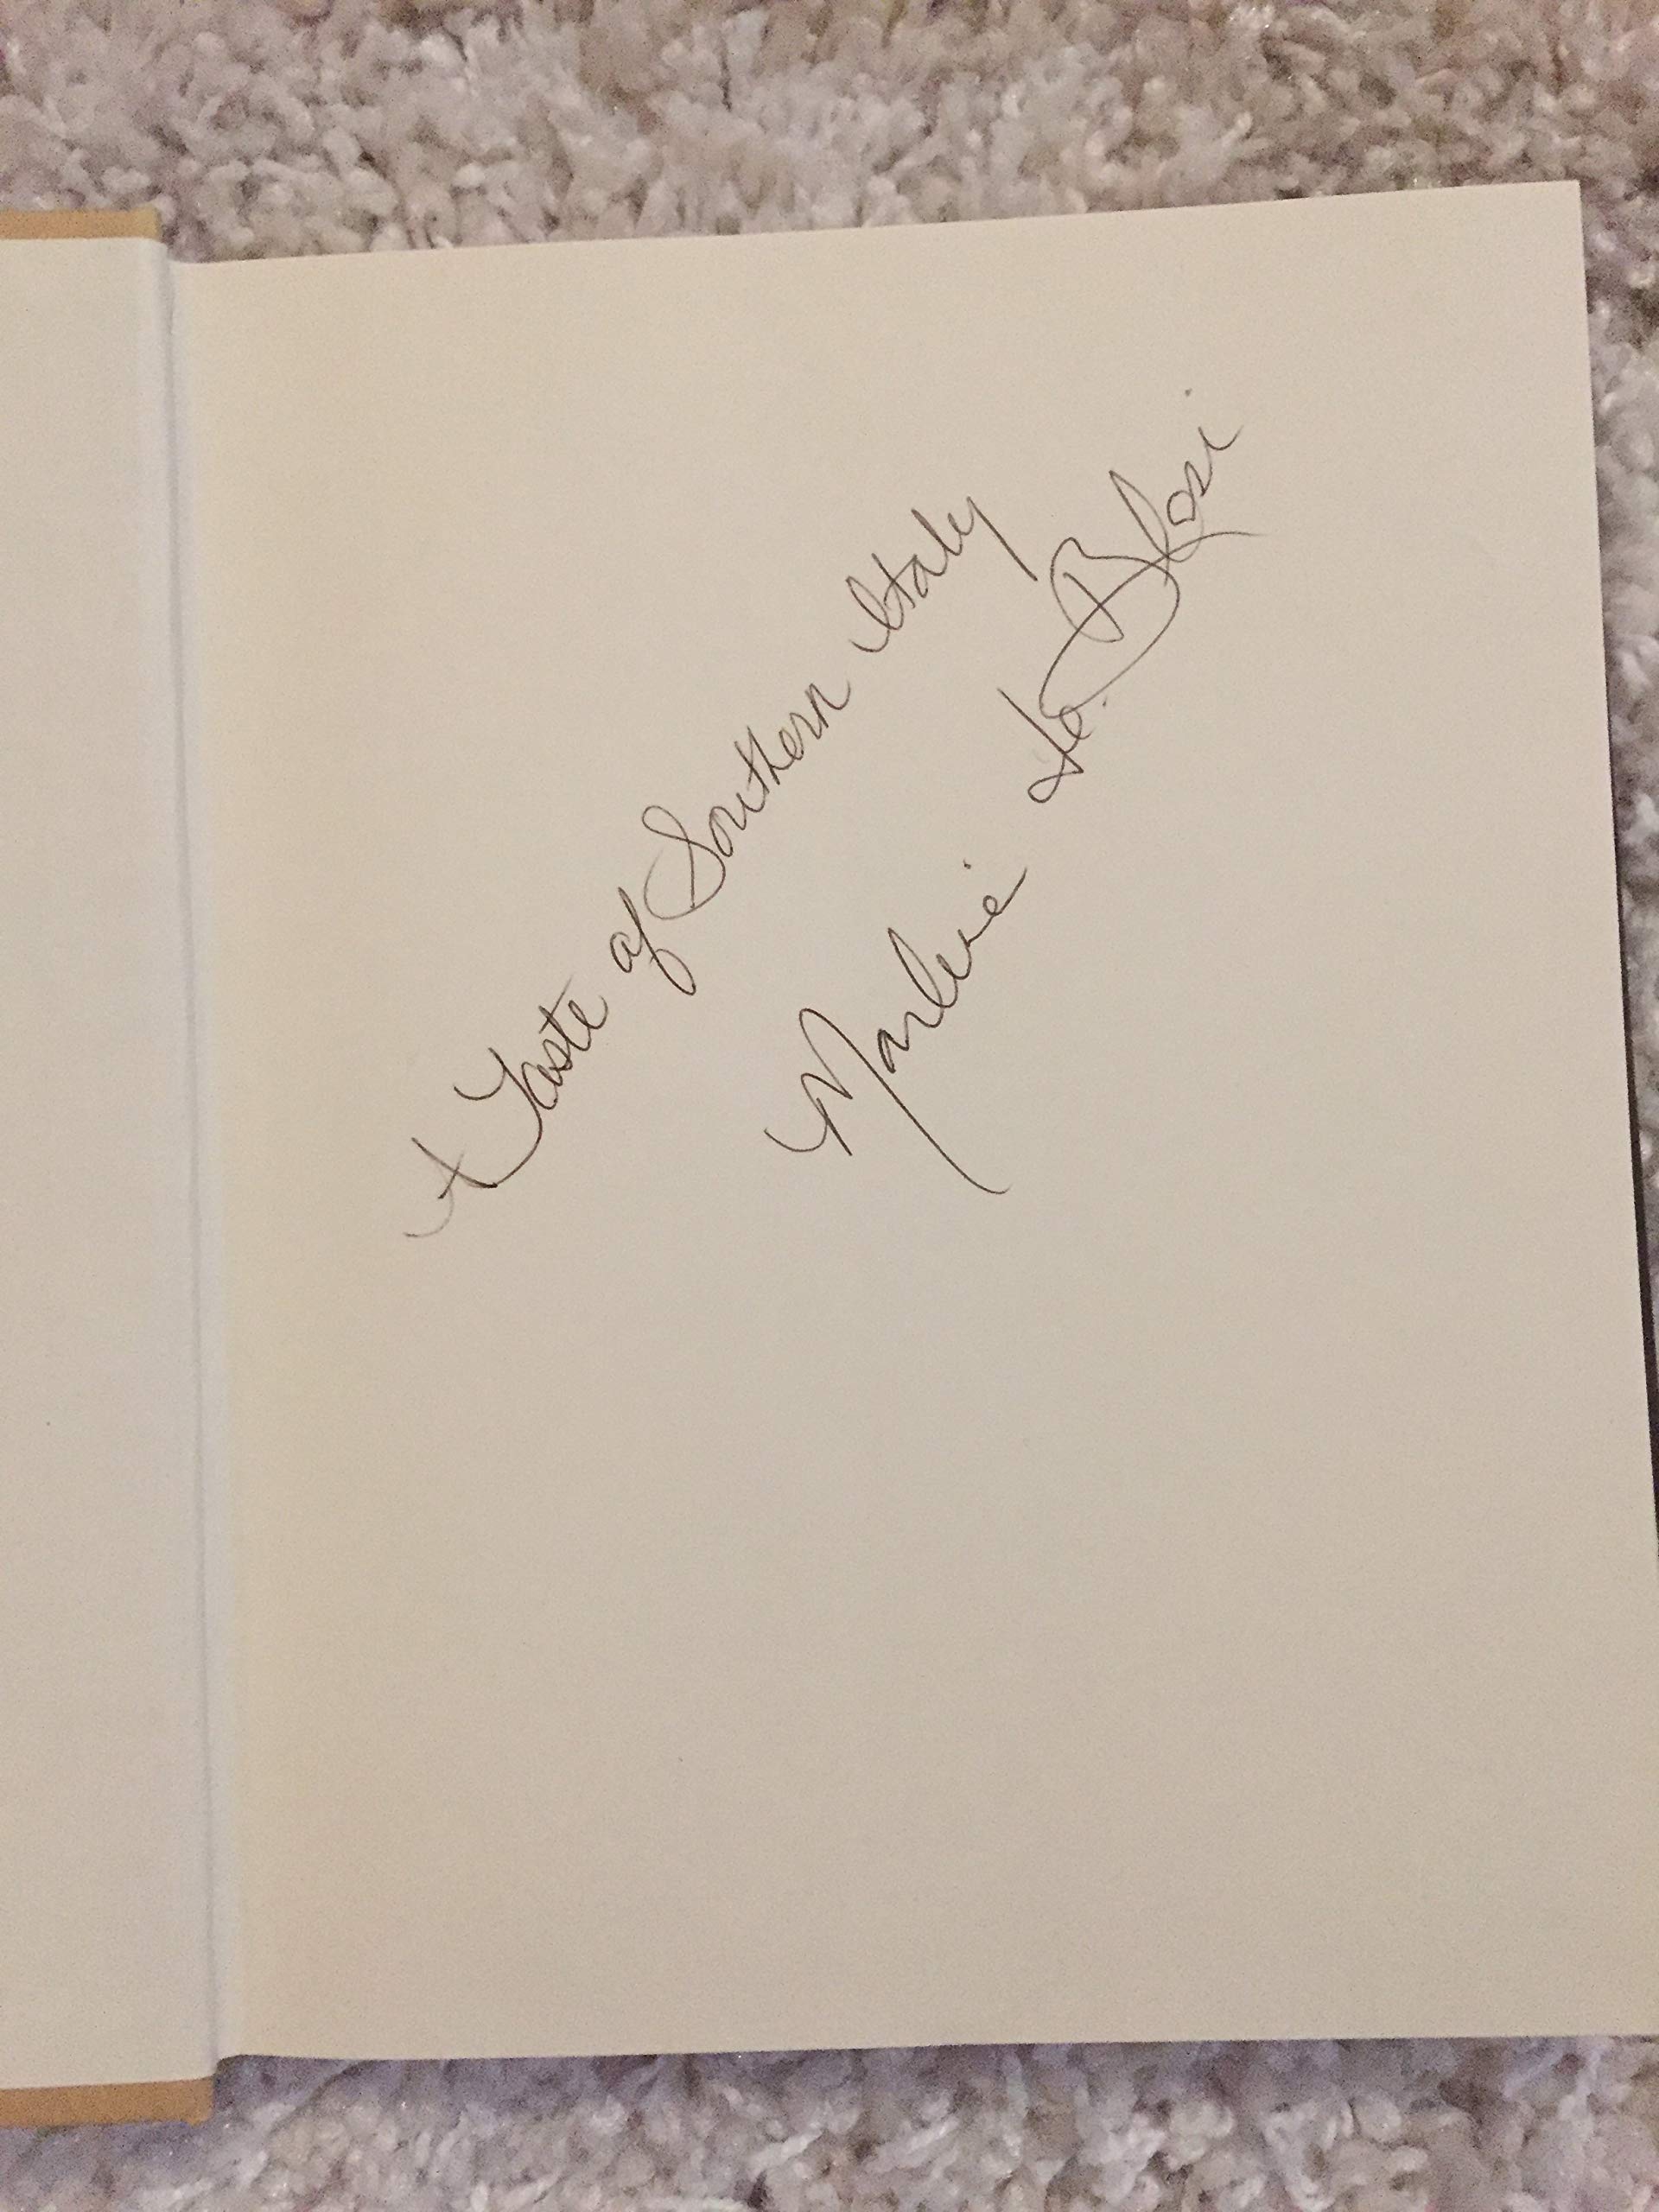 A Taste of Southern Italy
Marlena de Blasi